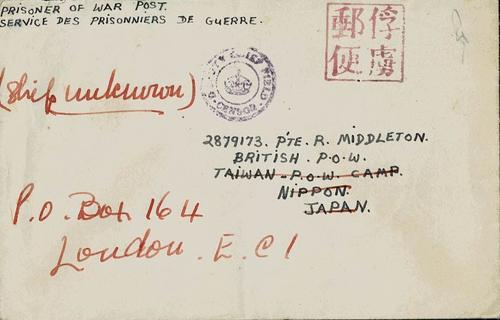 PRISONER OF WAR POST.
SERVICE DES PRISONNIERS DE GUERRE.
俘虜
郵便
(Ship unknown)
CENSOR
2879173. PTE. R. MIDDLETON.
BRITISH. P.O.W.
TAIWAN - P.O.W. CAMP.
NIPPON.
JAPAN.
P.O. Box 164
London. E.C1